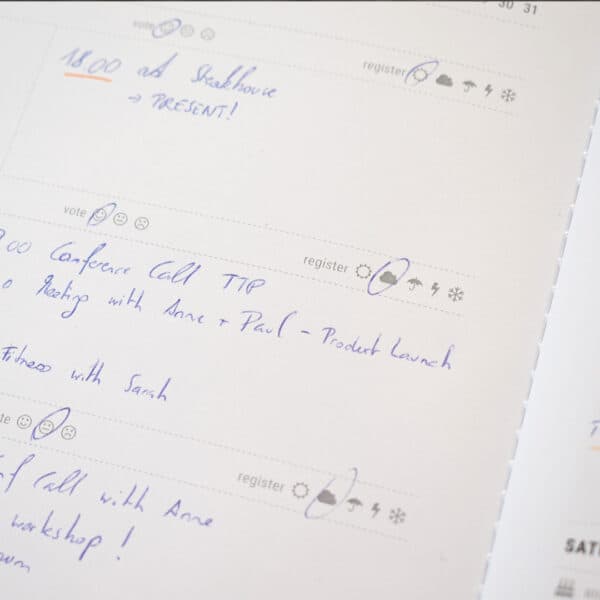 30 31
vote
register
18.00 at Steakhouse
→ PRESENT!
vote
register
00 Conference Call TTP
Meeting with Anne + Paul - Product Launch
Fitness with Sarah
register
Call with Anne
workshop!
SAT